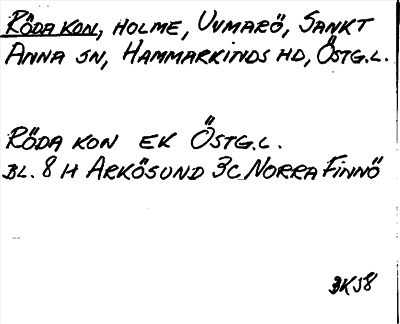 RÖDA KON, HOLME, UVMARÖ, SANKT
ANNA SN, HAMMARKINDS HD, ÖSTG.L.
RÖDA KON EK ÖSTG.L.
BL. 8 H ARKÖSUND 3C NORRA FINNÖ